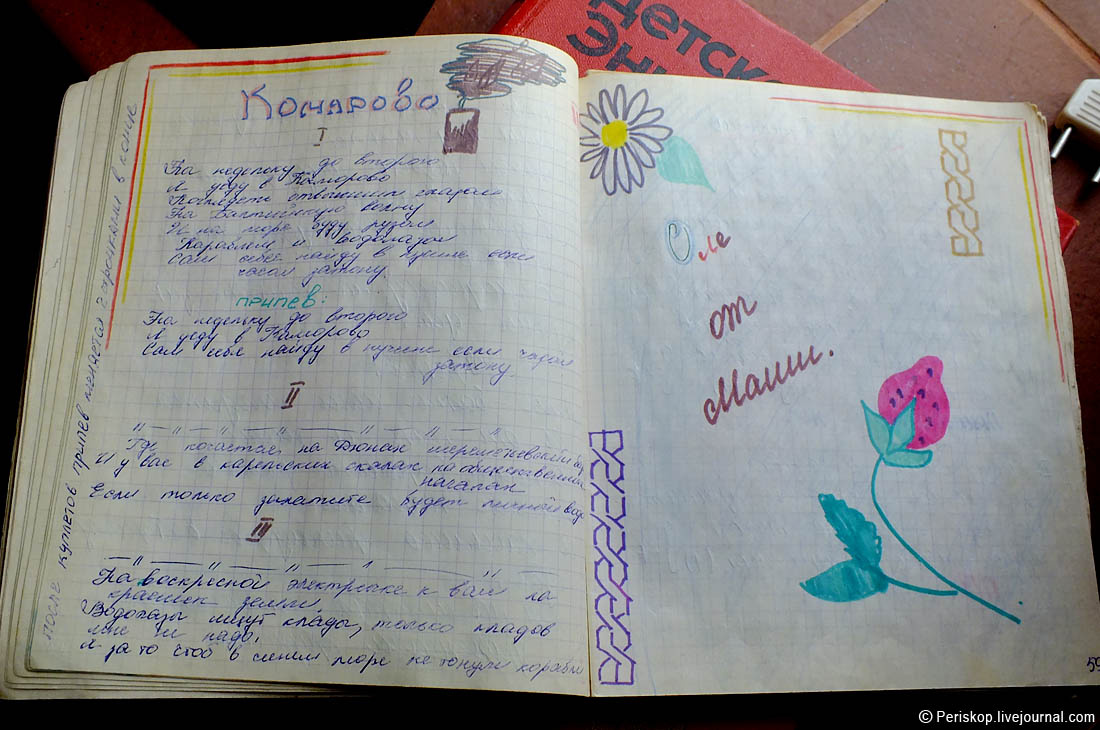 детска
Эн
Комарово
I
На недельку до второго
Я уеду в Комарово
Поглядеть отвыкшим глазом
На Балтийскую волну
И на море буду разом
Кораблем и водолазом
Сам себя найду в пучине если
часом затону.
припев:
На недельку до второго
Я уеду в Комарово
Сам себя найду в пучине если часом
затону.
II
Где качается на Дюнах шереметевский б
И у вас в карельских скалах на общественных
началах
Если только захотите будет личный вод
III
На воскресной электричке к вам на
краешек земли,
Водолазы ищут клады, только кладов
мне не надо,
Я за то чтоб в синем море не тонули корабли
после куплетов припев меняется 2 строчками в конце
Оле
от
Маши.
59
© Periskop.livejournal.com